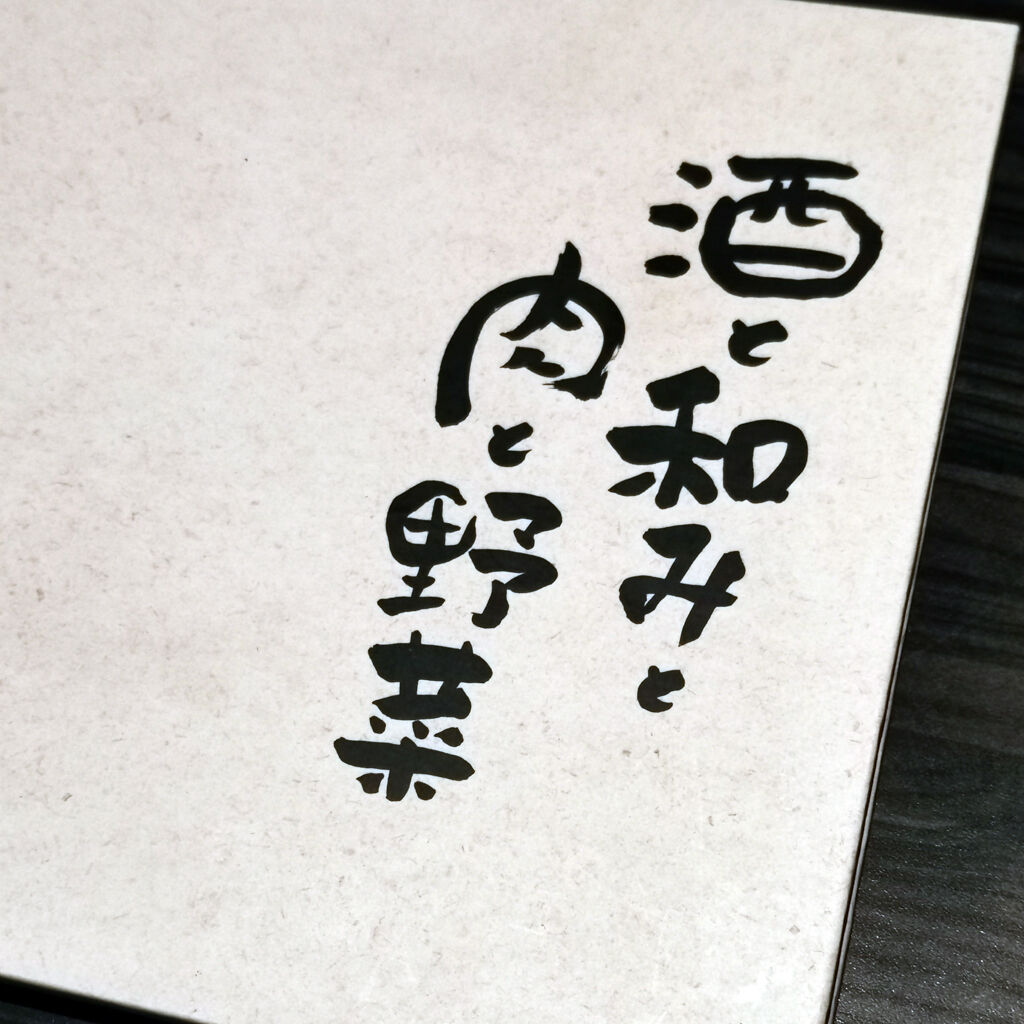 酒と和みと
肉と野菜